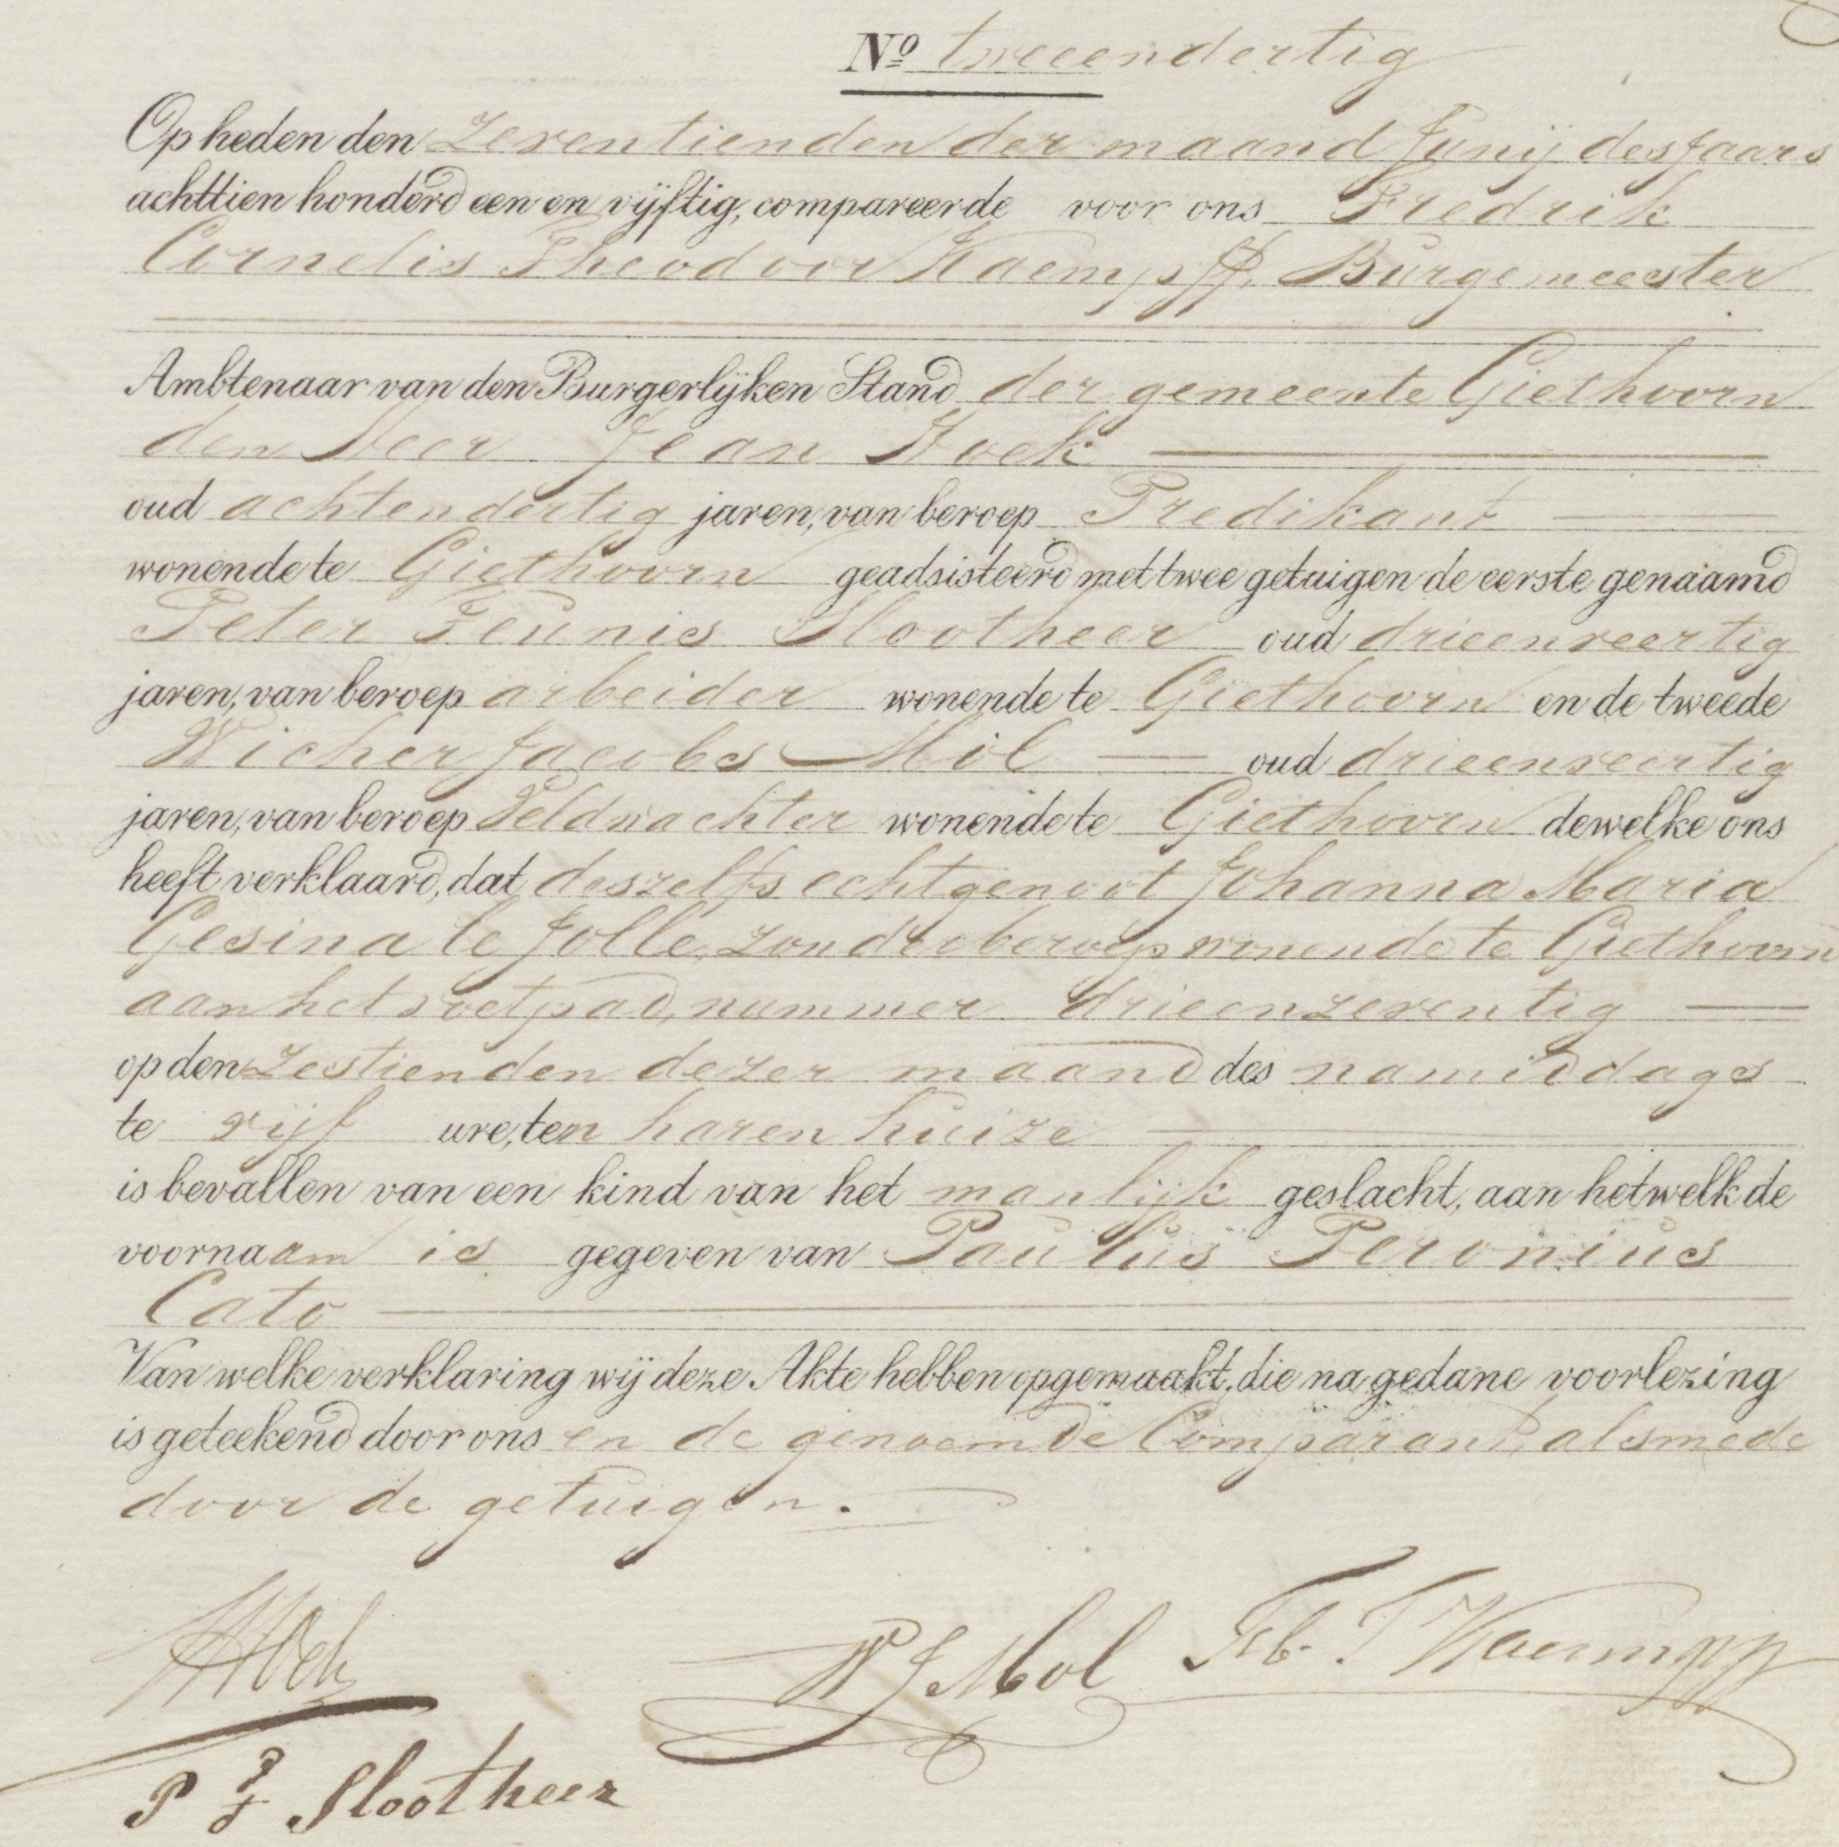 Nº tweeendertig
Op heden den zeventienden der maand Junij des jaars
achttien honderd een en vijftig, compareerde voor ons Fredrik
Cornelis Theodoor Kaempff, Burgemeester
Ambtenaar van den Burgerlijken Stand der gemeente Giethoorn
den Heer Jean Hoek
oud achtendertig jaren, van beroep Predikant
wonende te Giethoorn geadsisteerd met twee getuigen de eerste genaamd
Peter Teunis Slootheer oud drieenveertig
jaren, van beroep arbeider wonende te Giethoorn en de tweede
Wicher Jacobs Mol oud drieenveertig
jaren, van beroep Veldwachter wonende te Giethoorn dewelke ons
heeft verklaard, dat deszelfs echtgenoot Johanna Maria
Gesina le Jolle, zonder beroep wonende te Giethoorn
aan het voetpad, nummer drieenzeventig
op den zestienden dezer maand des namiddags
te vijf ure, ten haren huize
is bevallen van een kind van het manlijk geslacht, aan hetwelk de
voornaam is gegeven van Paulus Peronius
Cato
Van welke verklaring wij deze Akte hebben opgemaakt, die na gedane voorlezing
is geteekend door ons en de genoemde Comparant, alsmede
door de getuigen.
JHoek
W J Mol
F C T Kaempff
P T Slootheer